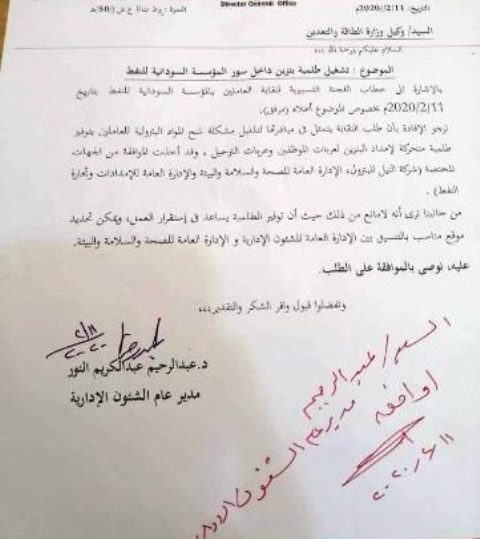 Director General Office
التاريخ: 2020/2/11م
السيد/ وكيل وزارة الطاقة والتعدين
السلام عليكم ورحمة الله ،،،
الموضوع : تشغيل طلمبة بنزين داخل سور المؤسسة السودانية للنفط
بالإشارة الى خطاب اللجنة التسييرية لنقابة العاملين بالمؤسسة السودانية للنفط بتاريخ
2020/2/11م بخصوص الموضوع أعلاه (مرفق).
نرجو الإفادة بأن طلب النقابة يتمثل في مبادرتها لتذليل مشكلة شح المواد البترولية للعاملين بتوفير
طلمبة متحركة لإمداد البنزين لعربات الموظفين وعربات الترحيل ، وقد أخذت الموافقة من الجهات
المختصة (شركة النيل للبترول، الإدارة العامة للصحة والسلامة والبيئة والإدارة العامة للإمدادات وتجارة
النفط) .
من جانبنا نرى أنه لامانع من ذلك حيث أن توفير الطلمبة يساعد في إستقرار العمل، ويمكن تحديد
موقع مناسب بالتنسيق بين الإدارة العامة للشئون الإدارية و الإدارة العامة للصحة والسلامة والبيئة.
عليه، نوصي بالموافقة على الطلب.
وتفضلوا قبول وافر الشكر والتقدير،،،
د.عبدالرحيم عبدالكريم النور
مدير عام الشئون الإدارية
السيد/ عبد الرحيم
مدير عام الشئون الإدارية
اوافق